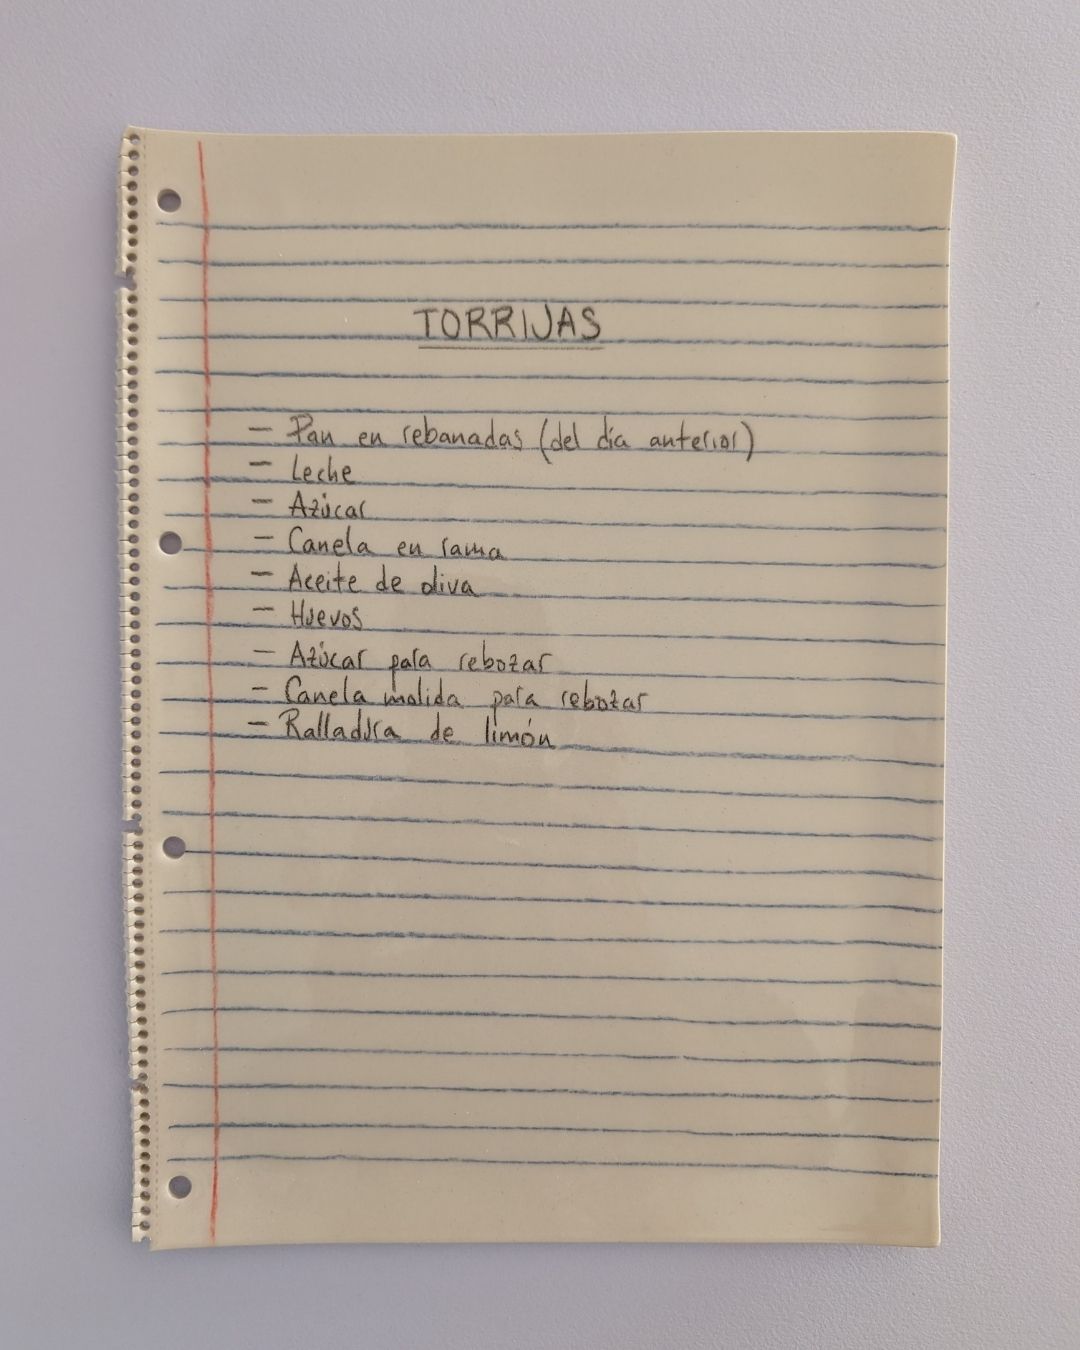 TORRIJAS
- Pan en rebanadas (del día anterior)
- Leche
- Azúcar
- Canela en rama
- Aceite de oliva
- Huevos
- Azúcar para rebozar
- Canela molida para rebozar
- Ralladura de limón